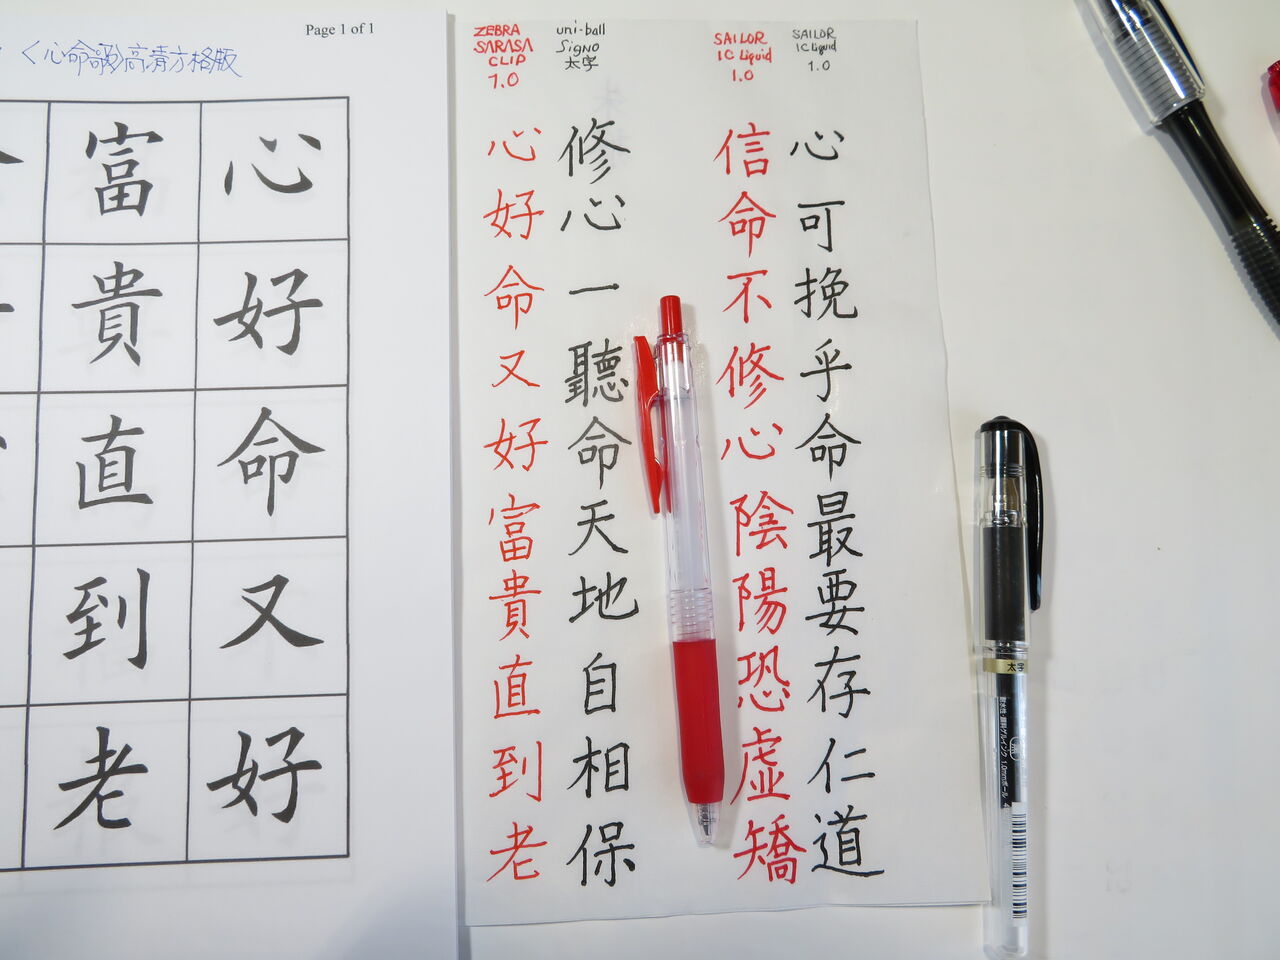 Page 1 of 1
〈心命頌〉高清方格版
心好命又好
富貴直到老
ZEBRA
SARASA
CLIP
1.0
心好命又好富貴直到老
uni-ball
SigNo
太字
修心一聽命天地自相保
SAILOR
IC Liquid
1.0
信命不修心陰陽恐虛矯
SAILOR
IC Liquid
1.0
心可挽乎命最要存仁道
太字
耐水性・顔料ゲルインク 1.0mmボール